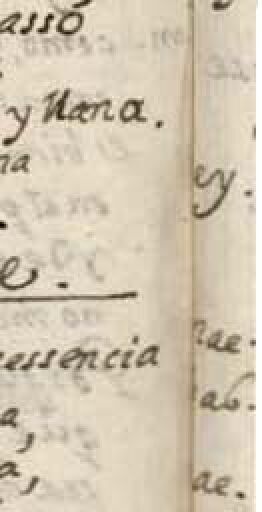 assó
y llana.
na
e.
essencia
a,
a,
ey.
ae.
ab.
ae.